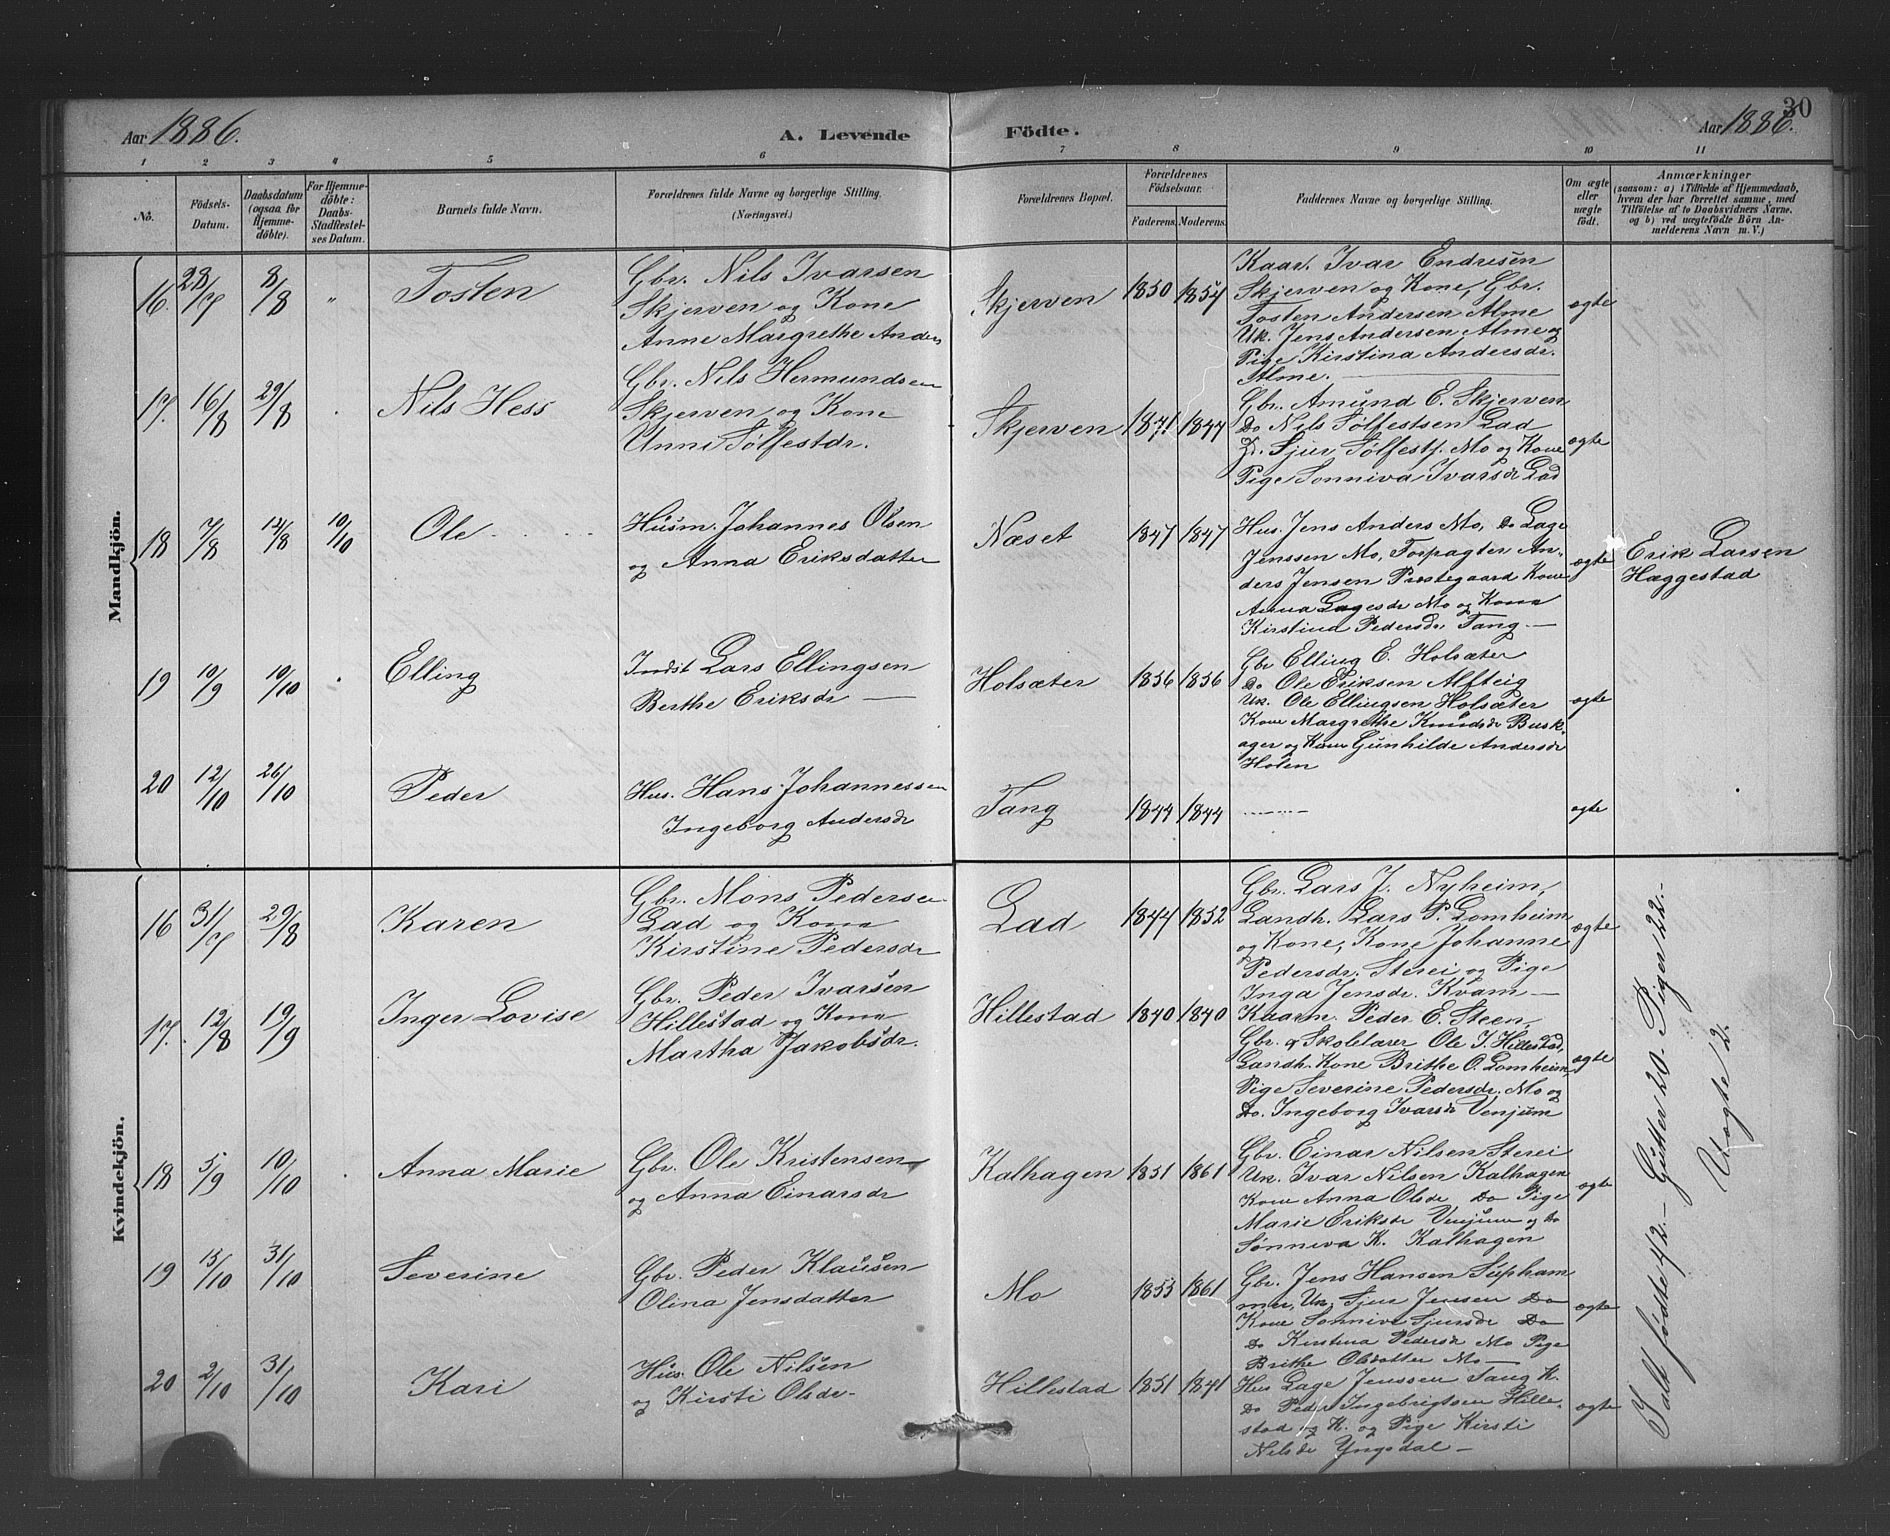 Aar 1886.
A. Levende Födte.
Aar 1886.
30
1 2 3 4 5 6 7 8 9 10 11
No.
Födsels-Datum.
Daabsdatum (ogsaa for Hjemmedöbte).
For Hjemmedöbte: Daabs-Stadfæstelses Datum.
Barnets fulde Navn.
Forældrenes fulde Navne og borgerlige Stilling.
(Næringsvei.)
Forældrenes Bopæl.
Forældrenes Födselsaar.
Faderens.
Moderens.
Faddernes Navne og borgerlige Stilling.
Om ægte eller uægte födt.
Anmærkninger
(saasom: a) i Tilfælde af Hjemmedaab, hvem der har forrettet samme, med Tilföielse af to Daabsvidners Navne, og b) ved uægtefödte Börn Anmelderens Navn m. V.)
Mandkjön.
16. 28/7 8/8 " Tosten
Gbr. Nils Ivarsen
Skjerven og Kone
Anne Margrethe Anders
Skjerven 1850 1854
Kaar. Ivar Endresen
Skjerven og Kone, Gbr.
Tosten Andersen Alme
Uk. Jens Andersen Alme og
Pige Kirstina Andersdr.
Alme.
ægte
17. 16/8 29/8 Nils Hess
Gbr. Nils Hermundsen
Skjerven og Kone
Unni Sølfestdr.
Skjerven 1871 1844
Gbr. Amund E. Skjerven
Do Nils Sølfestsen Lad
D. Sjur Sølfests. Mo og Kone
Pige Sønniva Ivarsdr Lad
ægte
18 7/8 12/8 10/10 Ole
Husm. Johannes Olsen
og Anna Eriksdatter
Næset 1847 1847
Hus. Jens Anders Mo, Do Lage
Jenssen Mo, Forpagter An-
ders Jensen Præstegaard Kone
Anna Lagesdr Mo og Kone
Kirstina Pedersdr Tang. —
ægte
Erik Larsen
Hæggestad
19 10/9 10/10 Elling
Indst Lars Ellingsen
Berthe Eriksdr —
Holsæter 1856 1856
Gbr Elling E. Holsæter
Do Ole Eriksen Alfteig
Uk. Ole Ellingsen Holsæter
Kone Margrethe Knudsdr Busk-
ager og Kone Gunhilde Andersdr
Holen
ægte
20 12/10 26/10 Peder
Hus. Hans Johannessen
Ingeborg Andersdr
Tang 1844 1844
ægte
Kvindekjön.
16 31/7 29/8 Karen
Gbr. Mons Pedersen
Lad og Kone
Kirstine Pedersdr
Lad 1844 1852
Gbr. Lars J. Nyheim,
Landh. Lars P. Lomheim
og Kone, Kone Johanne
Pedersdr. Sterei og Pige
Inga Jensdr. Kvam —
ægte
17. 12/8 19/9 Inger Lovise
Gbr. Peder Ivarsen
Hillestad og Kone
Martha Jakobsdr.
Hillestad 1840 1840
Kaarm. Peder E. Steen,
Gbr. & Skolelærer Ole I. Hillestad,
Landh. Kone Brithe O. Lomheim,
Pige Severine Pedersdr. Mo og
Do. Ingeborg Ivarsdr Venjum
ægte
18 5/9 10/10 Anna Marie
Gbr. Ole Kristensen
og Anna Einarsdr
Kalhagen 1851 1861
Gbr. Einar Nilsen Sterei
Uk. Ivar Nilsen Kalhagen
Kone Anna Olsdr Do Pige
Marie Eriksdr Venjum og Do
Sønniva K. Kalhagen
ægte
19 15/10 31/10 Severine
Gbr. Peder Klausen
Olina Jensdatter
Mo 1853 1861
Gbr. Jens Hansen Supham-
mer, Uk. Sjur Jensen Do
Kone Sønniva Sjursdr Do
Do Kirstina Pedersdr Mo Pige
Brithe Olsdatter Mo —
ægte
20 2/10 31/10 Kari
Hus. Ole Nilsen
og Kirsti Olsdr
Hillestad 1851 1841
Hus Lage Jenssen Tang K.
Do Peder Ingebrigtsen Hille-
stad og K. og Pige Kirsti
Nilsdr Yngsdal —
ægte
Ialt fødte 42.— Gutter 20. Piger 22.—
Uægte 2.